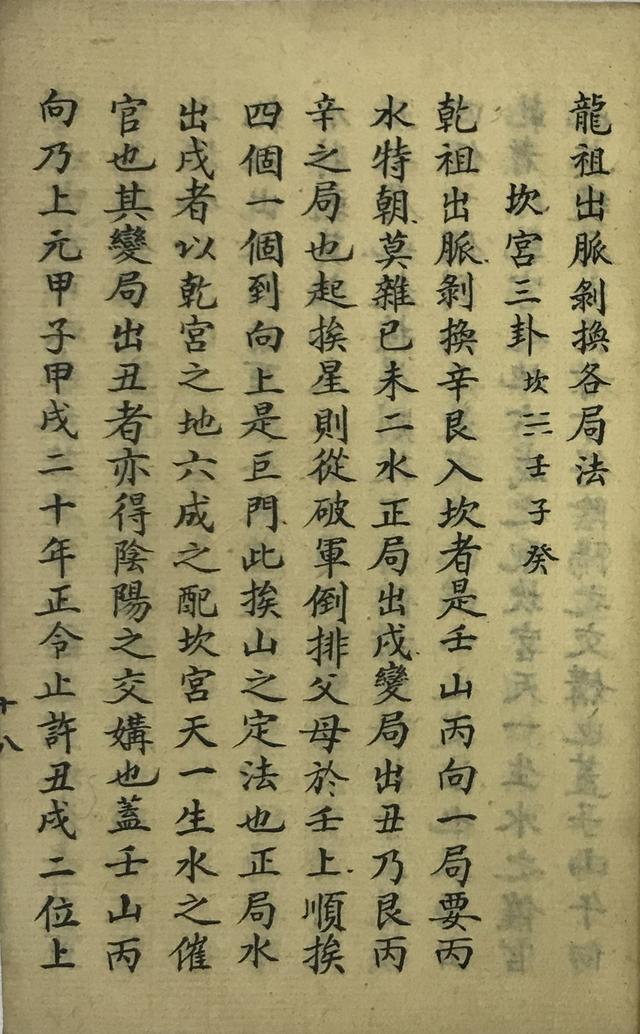 龍祖出脈剝換各局法
坎宮三卦 坎 ☵ 壬子癸
乾祖出脈剝換辛艮入坎者是壬山丙向一局要丙
水特朝莫雜巳未二水正局出戌變局出丑乃艮丙
辛之局也起挨星則從破軍倒排父母於壬上順挨
四個一個到向上是巨門此挨山之定法也正局水
出戌者以乾宮之地六成之配坎宮天一生水之催
官也其變局出丑者亦得陰陽之交媾也蓋壬山丙
向乃上元甲子甲戌二十年正令止許丑戌二位上
十八